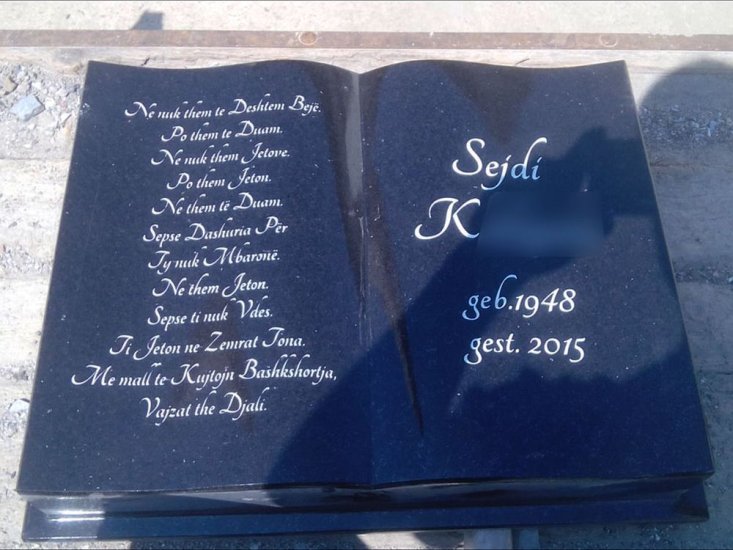 Ne nuk them te Deshtem Bejë.
Po them te Duam.
Ne nuk them Jetove.
Po them Jeton.
Ne them të Duam.
Sepse Dashuria Për
Ty nuk Mbaronë.
Ne them Jeton.
Sepse ti nuk Vdes.
Ti Jeton ne Zemrat Tona.
Me mall te Kujtojn Bashkshortja,
Vajzat the Djali.
Sejdi
geb.1948
gest. 2015